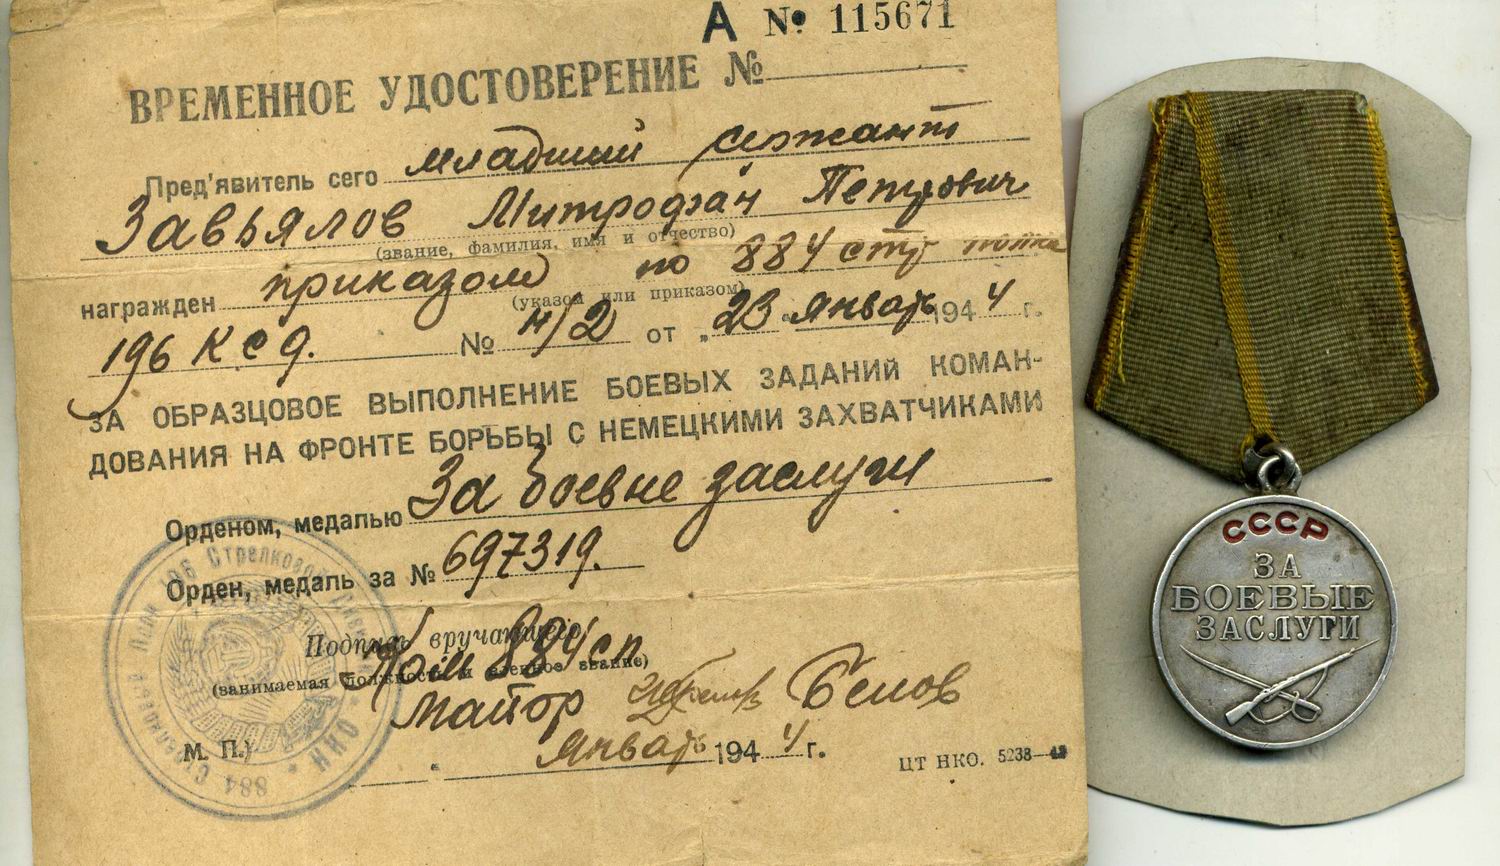 А № 115671
ВРЕМЕННОЕ УДОСТОВЕРЕНИЕ №
Пред'явитель сего младший сержант
Завьялов Митрофан Петрович
(звание, фамилия, имя и отчество)
награжден приказом по 884 стр полка
(указом или приказом)
196 КСД. № н/2 от „23 январь 1944 г.
ЗА ОБРАЗЦОВОЕ ВЫПОЛНЕНИЕ БОЕВЫХ ЗАДАНИЙ КОМАН-
ДОВАНИЯ НА ФРОНТЕ БОРЬБЫ С НЕМЕЦКИМИ ЗАХВАТЧИКАМИ
Орденом, медалью За боевые заслуги
Орден, медаль за № 697319.
Подпись вручающего
Ком 884 сп
(занимаемая должность и военное звание)
майор Белов
М. П. январь 1944 г.
ЦТ НКО. 5238
884 Стрелковый Полк 196 Стрелковой
СССР
ЗА
БОЕВЫЕ
ЗАСЛУГИ